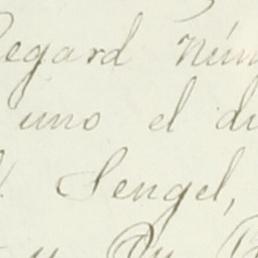 egard Núm
uno el di
Sengel,